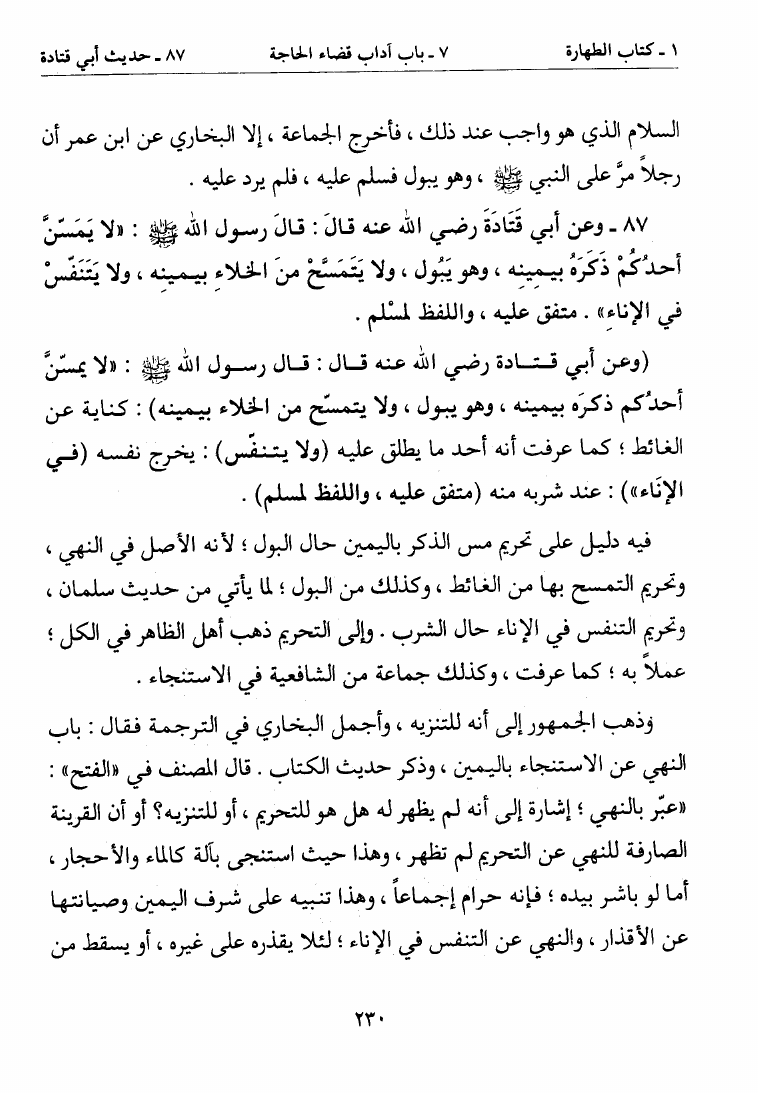 ١ ـ كتاب الطهارة ٧ ـ باب آداب قضاء الحاجة ٨٧ ـ حديث أبي قتادة
السلام الذي هو واجب عند ذلك ، فأخرج الجماعة ، إلا البخاري عن ابن عمر أن
رجلاً مرَّ على النبي ﷺ ، وهو يبول فسلم عليه ، فلم يرد عليه .
٨٧ ـ وعن أبي قَتَادَةَ رضي الله عنه قالَ : قالَ رسول الله ﷺ : «لا يَمَسَّنَّ
أحدُكُمْ ذَكَرَهُ بيمينِه ، وهو يَبُول ، ولا يَتَمَسَّحْ منَ الخلاءِ بيمينِه ، ولا يَتَنَفَّسْ
في الإناءِ» . متفق عليه ، واللفظ لمسْلم .
(وعن أبي قتادة رضي الله عنه قال : قال رسول الله ﷺ : «لا يمسّنَّ
أحدُكم ذكرَه بيمينه ، وهو يبول ، ولا يتمسّح من الخلاء بيمينه) : كناية عن
الغائط ؛ كما عرفت أنه أحد ما يطلق عليه (ولا يتنفّس) : يخرج نفسه (في
الإنَاء») : عند شربه منه (متفق عليه ، واللفظ لمسلم) .
فيه دليل على تحريم مس الذكر باليمين حال البول ؛ لأنه الأصل في النهي ،
وتحريم التمسح بها من الغائط ، وكذلك من البول ؛ لما يأتي من حديث سلمان ،
وتحريم التنفس في الإناء حال الشرب . وإلى التحريم ذهب أهل الظاهر في الكل ؛
عملاً به ؛ كما عرفت ، وكذلك جماعة من الشافعية في الاستنجاء .
وذهب الجمهور إلى أنه للتنزيه ، وأجمل البخاري في الترجمة فقال : باب
النهي عن الاستنجاء باليمين ، وذكر حديث الكتاب . قال المصنف في «الفتح» :
«عبّر بالنهي ؛ إشارة إلى أنه لم يظهر له هل هو للتحريم ، أو للتنزيه؟ أو أن القرينة
الصارفة للنهي عن التحريم لم تظهر ، وهذا حيث استنجى بآلة كالماء والأحجار ،
أما لو باشر بيده ؛ فإنه حرام إجماعاً ، وهذا تنبيه على شرف اليمين وصيانتها
عن الأقذار ، والنهي عن التنفس في الإناء ؛ لئلا يقذره على غيره ، أو يسقط من
٢٣٠